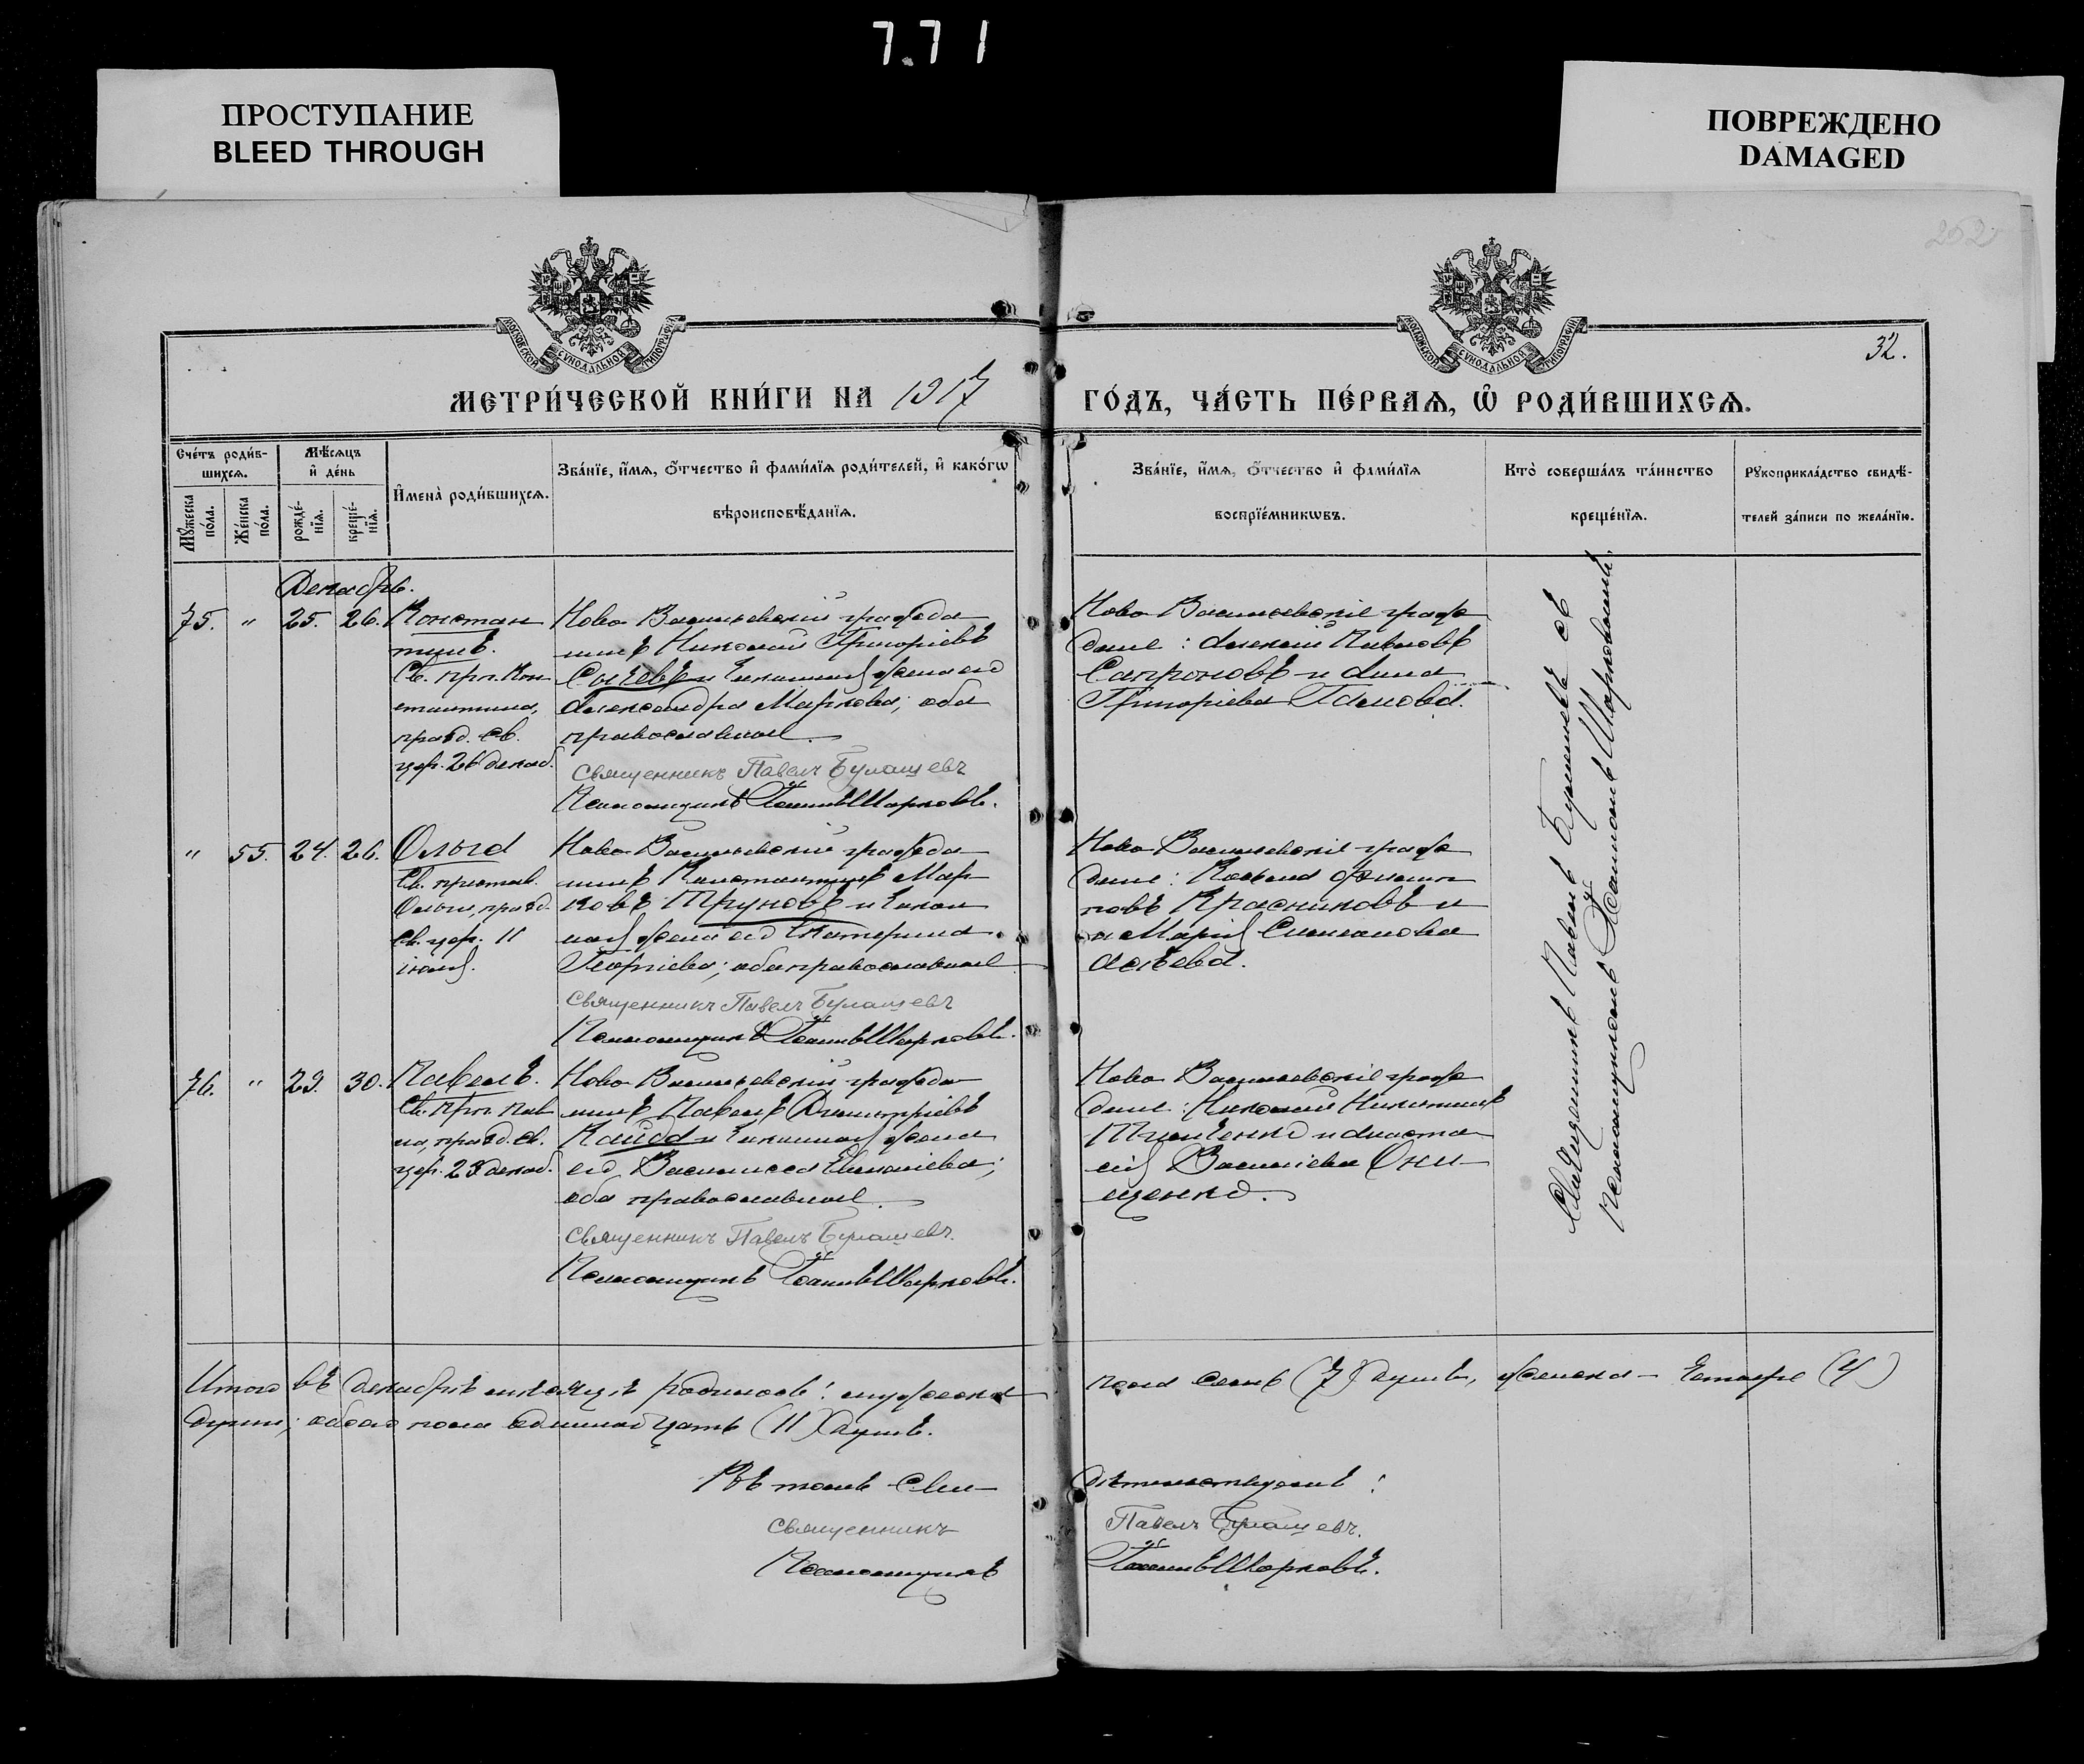 7.71
ПРОСТУПАНИЕ
BLEED THROUGH
ПОВРЕЖДЕНО
DAMAGED
252
32.
МОСКОВСКОЙ СѴНОДАЛЬНОЙ ТИПОГРАФІИ
МОСКОВСКОЙ СѴНОДАЛЬНОЙ ТИПОГРАФІИ
МЕТРИ́ЧЕСКОЙ КНИ́ГИ НА 1917
ГО́ДЪ, ЧА́СТЬ ПЕ́РВАѦ, Ѡ҆ РОДИ́ВШИХСѦ.
Сче́тъ роди́в-
шихсѧ.
Мꙋ́жеска
по́ла.
Же́нска
по́ла.
Мѣ́сѧцъ
и҆ де́нь
рожде́-
нїѧ.
креще́-
нїѧ.
И҆мена̀ роди́вшихсѧ.
Зва́нїе, и҆́мѧ, ѻ҆́тчество и҆ фами́лїѧ роди́телей, и҆ како́гѡ
вѣроисповѣ́данїѧ.
Зва́нїе, и҆́мѧ, ѻ҆́тчество и҆ фами́лїѧ
воспрїе́мникѡвъ.
Кто̀ соверша́лъ та́инство
креще́нїѧ.
Рꙋкоприкла́дство свидѣ́-
телей за́писи по жела́нїю.
Декабрь.
75. " 25. 26.
Констан
тинъ.
Св. прп. Кон
стантина,
празд. св.
цер. 26 декаб.
Ново Васильевскій гражда
нинъ Николай Григоріевъ
Сычевъ и законная жена его
Александра Маркова; оба
православные.
Священникъ Павелъ Булашевъ
Псаломщикъ Іоаннъ Шарковъ.
Ново Васильевскіе граж
дане: Алексій Павловъ
Сапроновъ и Анна
Григоріева Панова.
" 55. 24. 26.
Ольга
Св. Ольги, празд.
св. цер. 11
іюля.
Ново Васильевскій гражда
нинъ Константинъ Мар
ковъ Труновъ и закон
ная жена его Екатерина
Георгіева; оба православные
Священникъ Павелъ Булашевъ
Псаломщикъ Іоаннъ Шарковъ.
Ново Васильевскіе граж
дане: Филип
повъ Красниковъ и
Марія
Асѣева.
76. " 29. 30.
Павелъ.
Св. прп. Пав
ла, празд. св.
цер. декаб.
Ново Васильевскій гражда
нинъ Павелъ Димитріевъ
Кайда и законная жена
его Василисса
оба православные.
Священникъ Павелъ Булашевъ.
Псаломщикъ Іоаннъ Шарковъ.
Ново Васильевскіе граж
дане: Николай Никитинъ
Тимченко и Анаста
сія Васильева Они-
щенко.
Священникъ Павелъ Булашевъ съ
псаломщикомъ Іоанномъ Шарковымъ.
Итого въ декабрѣ мѣсяцѣ родилось: мужеска
пола семь (7) душъ, женска – четыре (4)
души; обоего пола одиннадцать (11) душъ.
Въ томъ сви-
дѣтельствуемъ:
Священникъ
Павелъ Булашевъ.
Псаломщикъ
Іоаннъ Шарковъ.